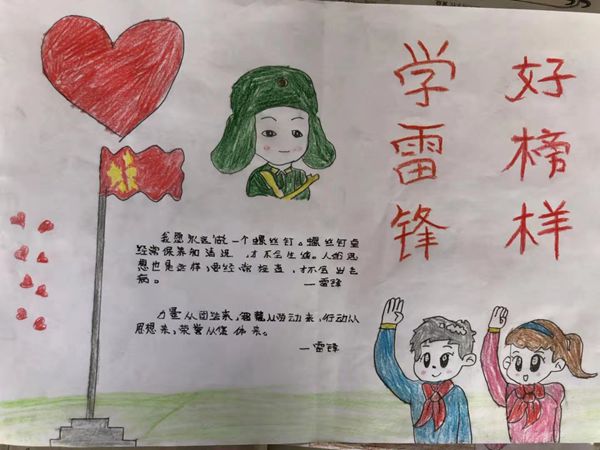 学雷锋
好榜样
我愿永远做一个螺丝钉。螺丝钉要
经常保养和清洗，才不会生锈。人的思
想也是这样，要经常检查，才不会出毛
病。
—雷锋
力量从团结来，智慧从劳动来，行动从
思想来，荣誉从集体来。
—雷锋